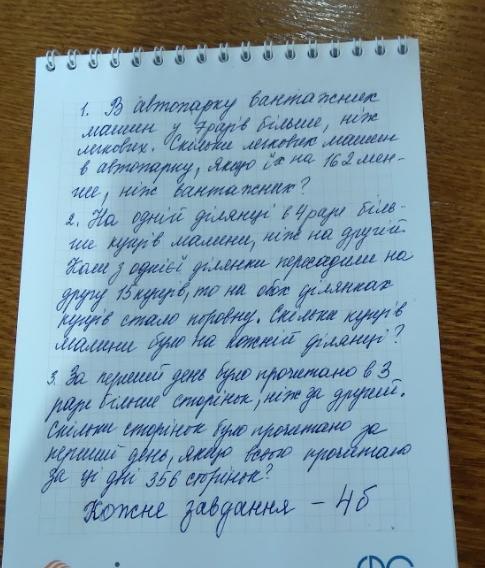 1. В автопарку вантажних
машин у 7 разів більше, ніж
легкових. Скільки легкових машин
в автопарку, якщо їх на 162 мен-
ше, ніж вантажних?
2. На одній ділянці в 4 рази біль-
ше кущів малини, ніж на другій.
Коли з однієї ділянки пересадили на
другу 15 кущів, то на обох ділянках
кущів стало порівну. Скільки кущів
малини було на кожній ділянці?
3. За перший день було прочитано в 3
рази більше сторінок, ніж за другий.
Скільки сторінок було прочитано за
перший день, якщо всього прочитано
за ці дні 356 сторінок?
Кожне завдання - 4б